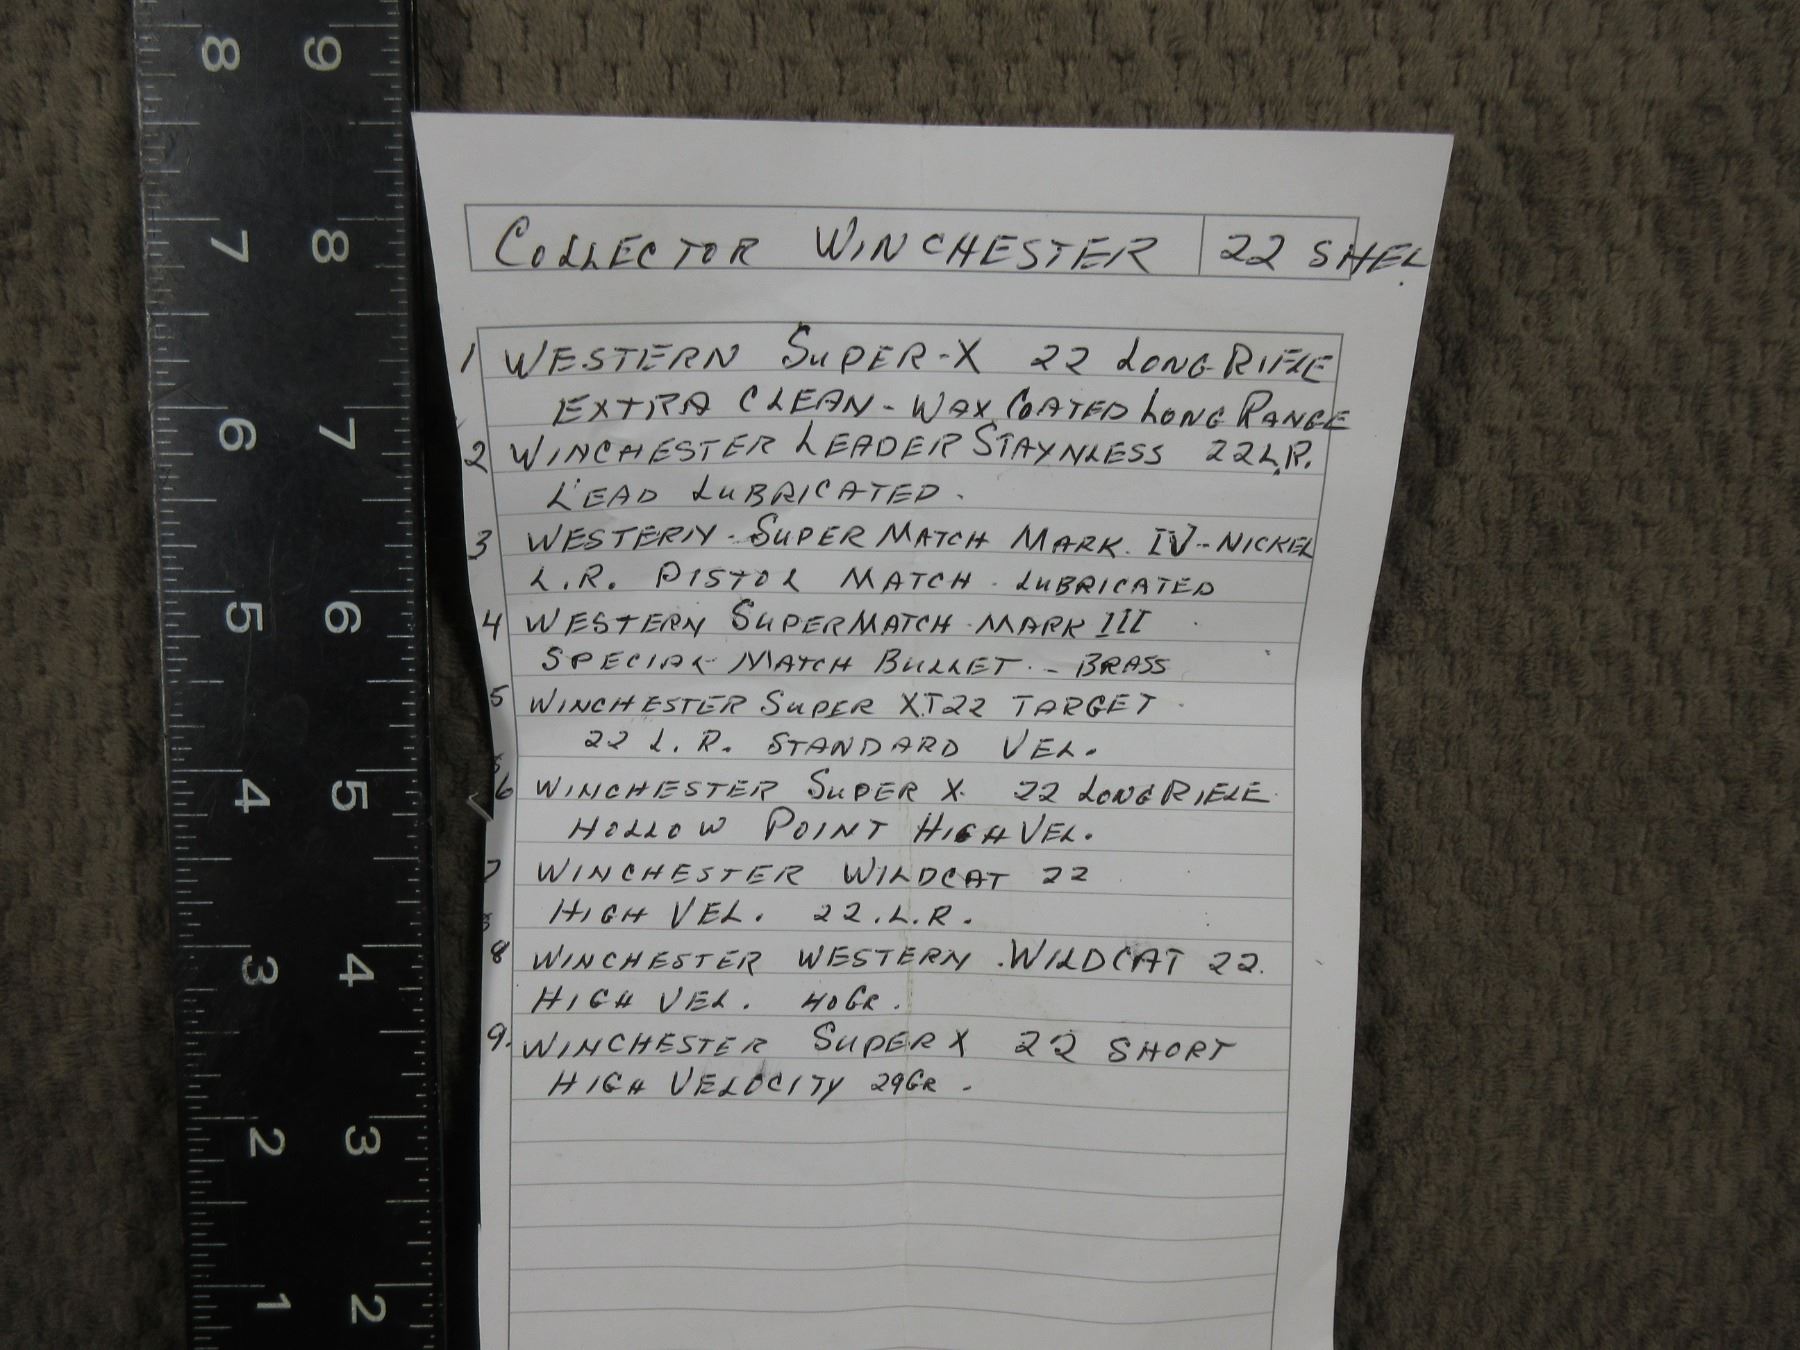 COLLECTOR WINCHESTER 22 SHEL
1 WESTERN SUPER-X 22 LONG RIFLE
EXTRA CLEAN - WAX COATED LONG RANGE
2 WINCHESTER LEADER STAYNLESS 22 L.R.
LEAD LUBRICATED.
3 WESTERN - SUPER MATCH MARK IV - NICKEL
L.R. PISTOL MATCH - LUBRICATED
4 WESTERN SUPER MATCH MARK III
SPECIAL MATCH BULLET. - BRASS
5 WINCHESTER SUPER XT22 TARGET
22 L.R. STANDARD VEL.
6 WINCHESTER SUPER X 22 LONG RIFLE
HOLLOW POINT HIGH VEL.
7 WINCHESTER WILDCAT 22
HIGH VEL. 22.L.R.
8 WINCHESTER WESTERN WILDCAT 22.
HIGH VEL. 40GR.
9. WINCHESTER SUPER X 22 SHORT
HIGH VELOCITY 29GR.
8 9
7 8
6 7
5 6
4 5
3 4
2 3
1 2